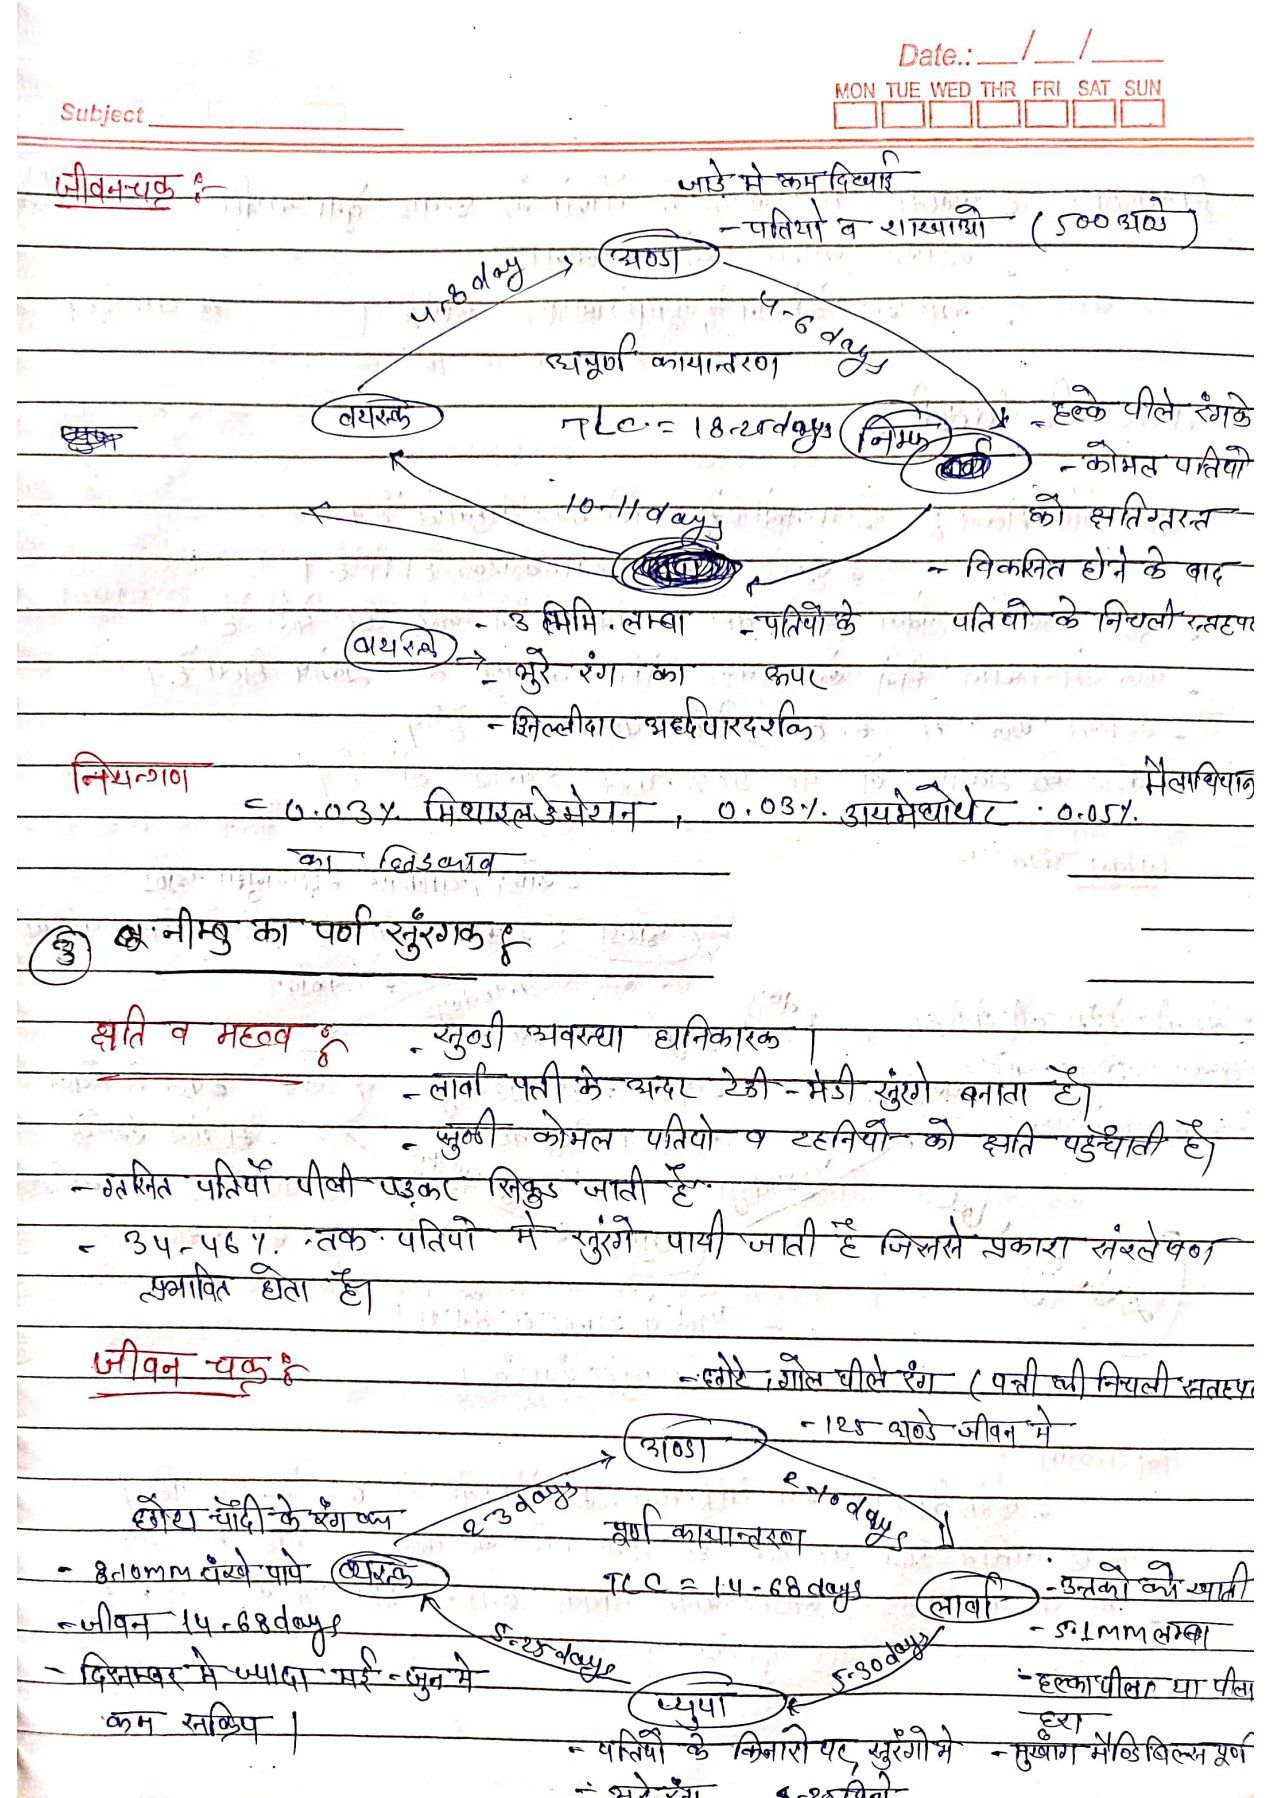 Date.: __/__/____
MON TUE WED THR FRI SAT SUN
Subject
जीवनचक्र :-
जाड़े मे कम दिखाई
- पतियो व शाखाओ (500 अण्डे)
अण्डा
4-8 day
4-6 days
अपूर्ण कायान्तरण
वयस्क
TLC = 18-25 days
निम्फ
- हल्के पीले रंग के
- कोमल पतियो
को क्षतिग्रस्त
10-11 days
- विकसित होने के बाद
पतियो के निचली सतह पर
वयस्क →
- 3 मिमि. लम्बा - पतियो के
- भुरे रंग का ऊपर
- झिल्लीदार अर्ध्दपारदर्शक
नियन्त्रण
मैलाथियान
= 0.03%. मिथाइल डेमेटान, 0.03%. डायमेथोयेट . 0.05%.
का छिडकाव
3 नीम्बु का पर्ण सुंरगक :
क्षति व महत्व :
- सुण्डी अवस्था हानिकारक |
- लार्वा पत्ती के अन्दर टेडी - मेडी सुंरगे बनाता है।
- सुण्डी कोमल पतियो व टहनियो को क्षति पहुँचाती है।
- ग्रसित पतियाँ पीली पड़कर सिकुड जाती है
- 34-46%. तक पतियो मे सुंरगे पायी जाती है जिससे प्रकाश संश्लेषण
प्रभावित होता है।
जीवन चक्र :
- छोटे, गोल पीले रंग (पत्ती की निचली सतह पर
- 125 अण्डे जीवन मे
अण्डा
2-3 days
2-10 days
छोटा चाँदी के रंग का
पूर्ण कायान्तरण
- 8-10mm पंखे पाये
वयस्क
TLC = 14-68 days
लार्वा
- उत्तको को खाती
- जीवन 14-68 days
- 5.1mm लम्बा
5-25 days
5-30 days
- दिसम्बर मे ज्यादा मई - जुन मे
- हल्का पीला या पीला
कम सक्रिय |
हरा
प्युपा
- पतियो के किनारो पर, सुंरगो मे
- मुखांग मैन्डिबिल्स पूर्ण
- भुरे रंग